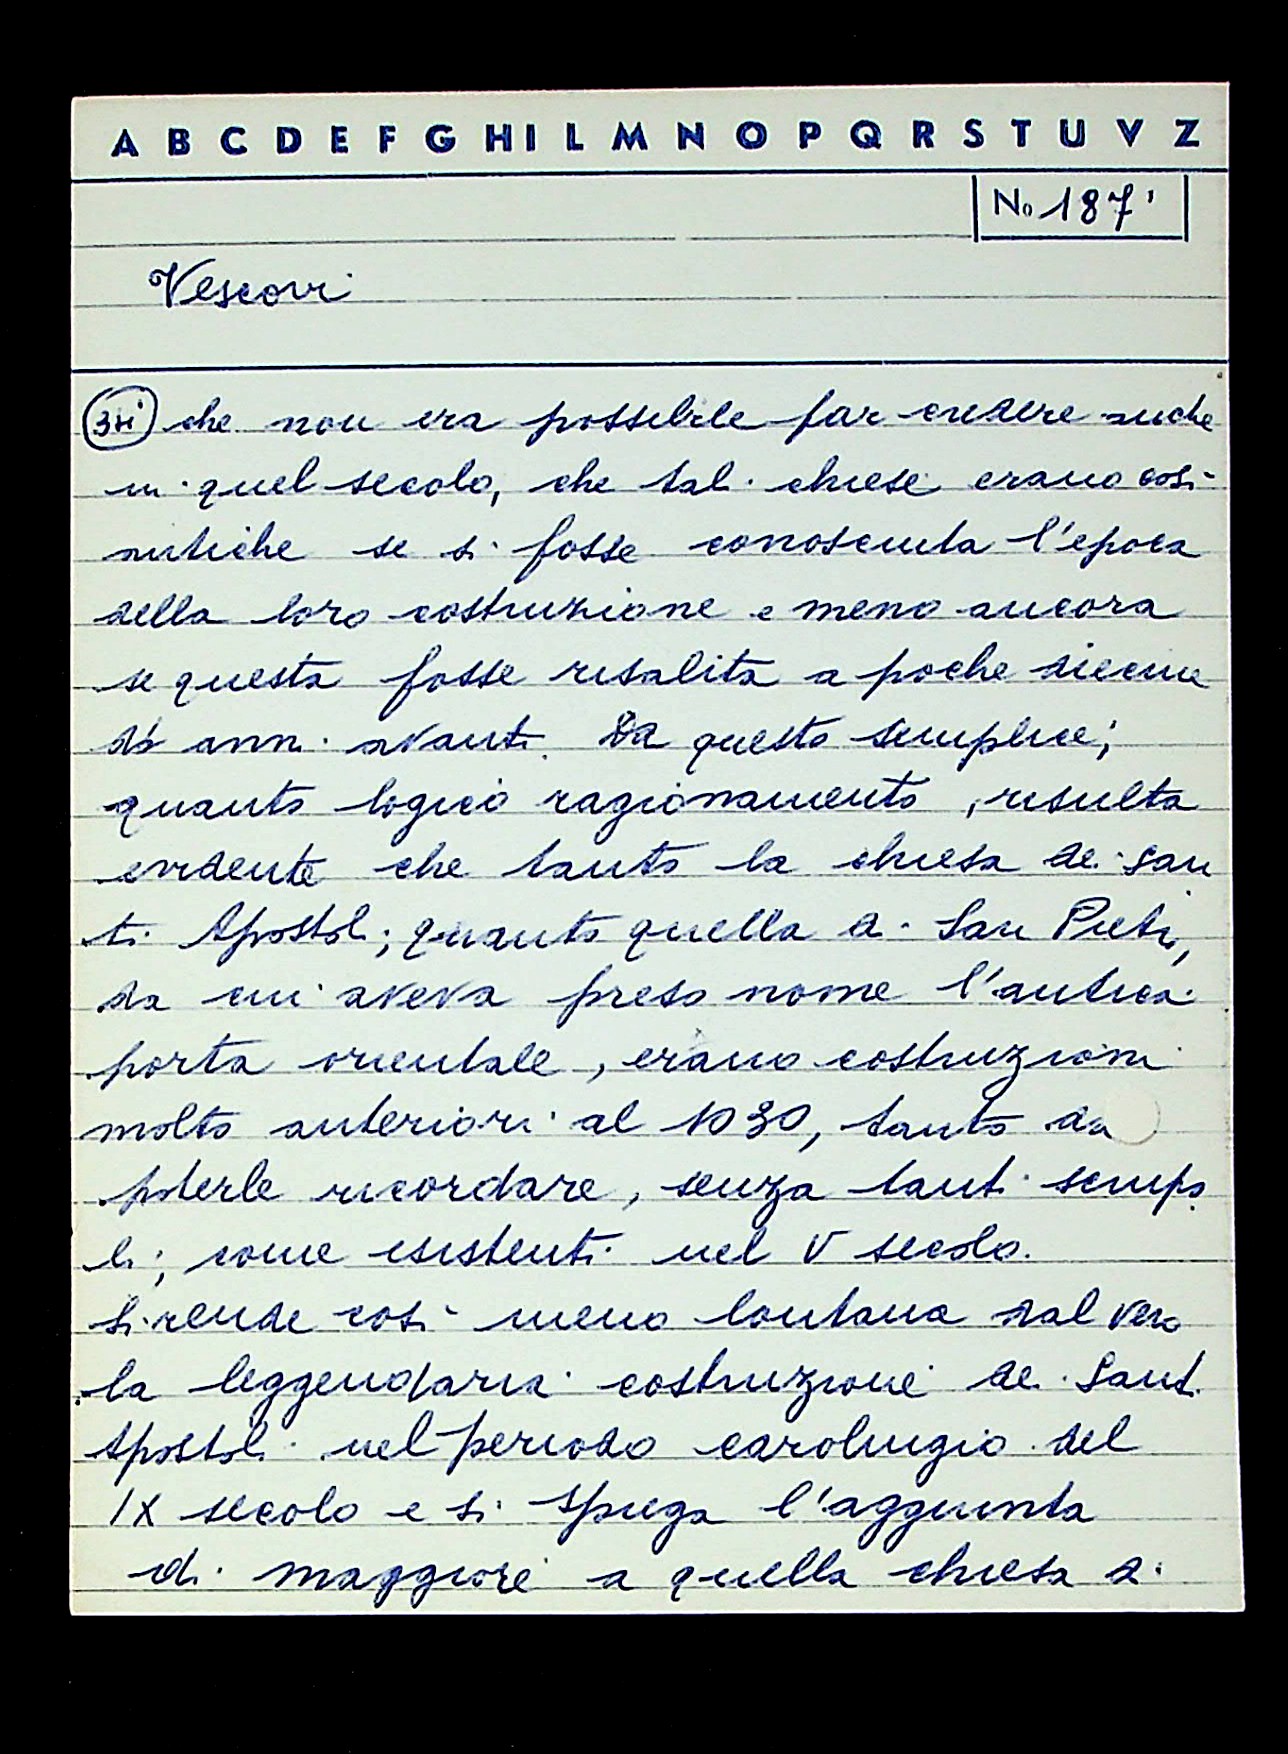 A B C D E F G H I L M N O P Q R S T U V Z
No 187'
Vescovi
che non era possibile far credere anche
in quel secolo, che tali chiese erano così
antiche se si fosse conosciuta l'epoca
della loro costruzione e meno ancora
se questa fosse risalita a poche diecine
di anni avanti. Da questo semplice,
quanto logico ragionamento, risulta
evidente che tanto la chiesa dei San
ti Apostoli, quanto quella di San Pietro,
da cui aveva preso nome l'antica
porta orientale, erano costruzioni
molto anteriori al 1030, tanto da
poterle ricordare, senza tanti scrupo
li, come esistenti nel V secolo.
Si rende così meno lontana dal vero
la leggendaria costruzione dei Santi
Apostoli nel periodo carolingio del
IX secolo e si spiega l'aggiunta
di maggiore a quella chiesa di